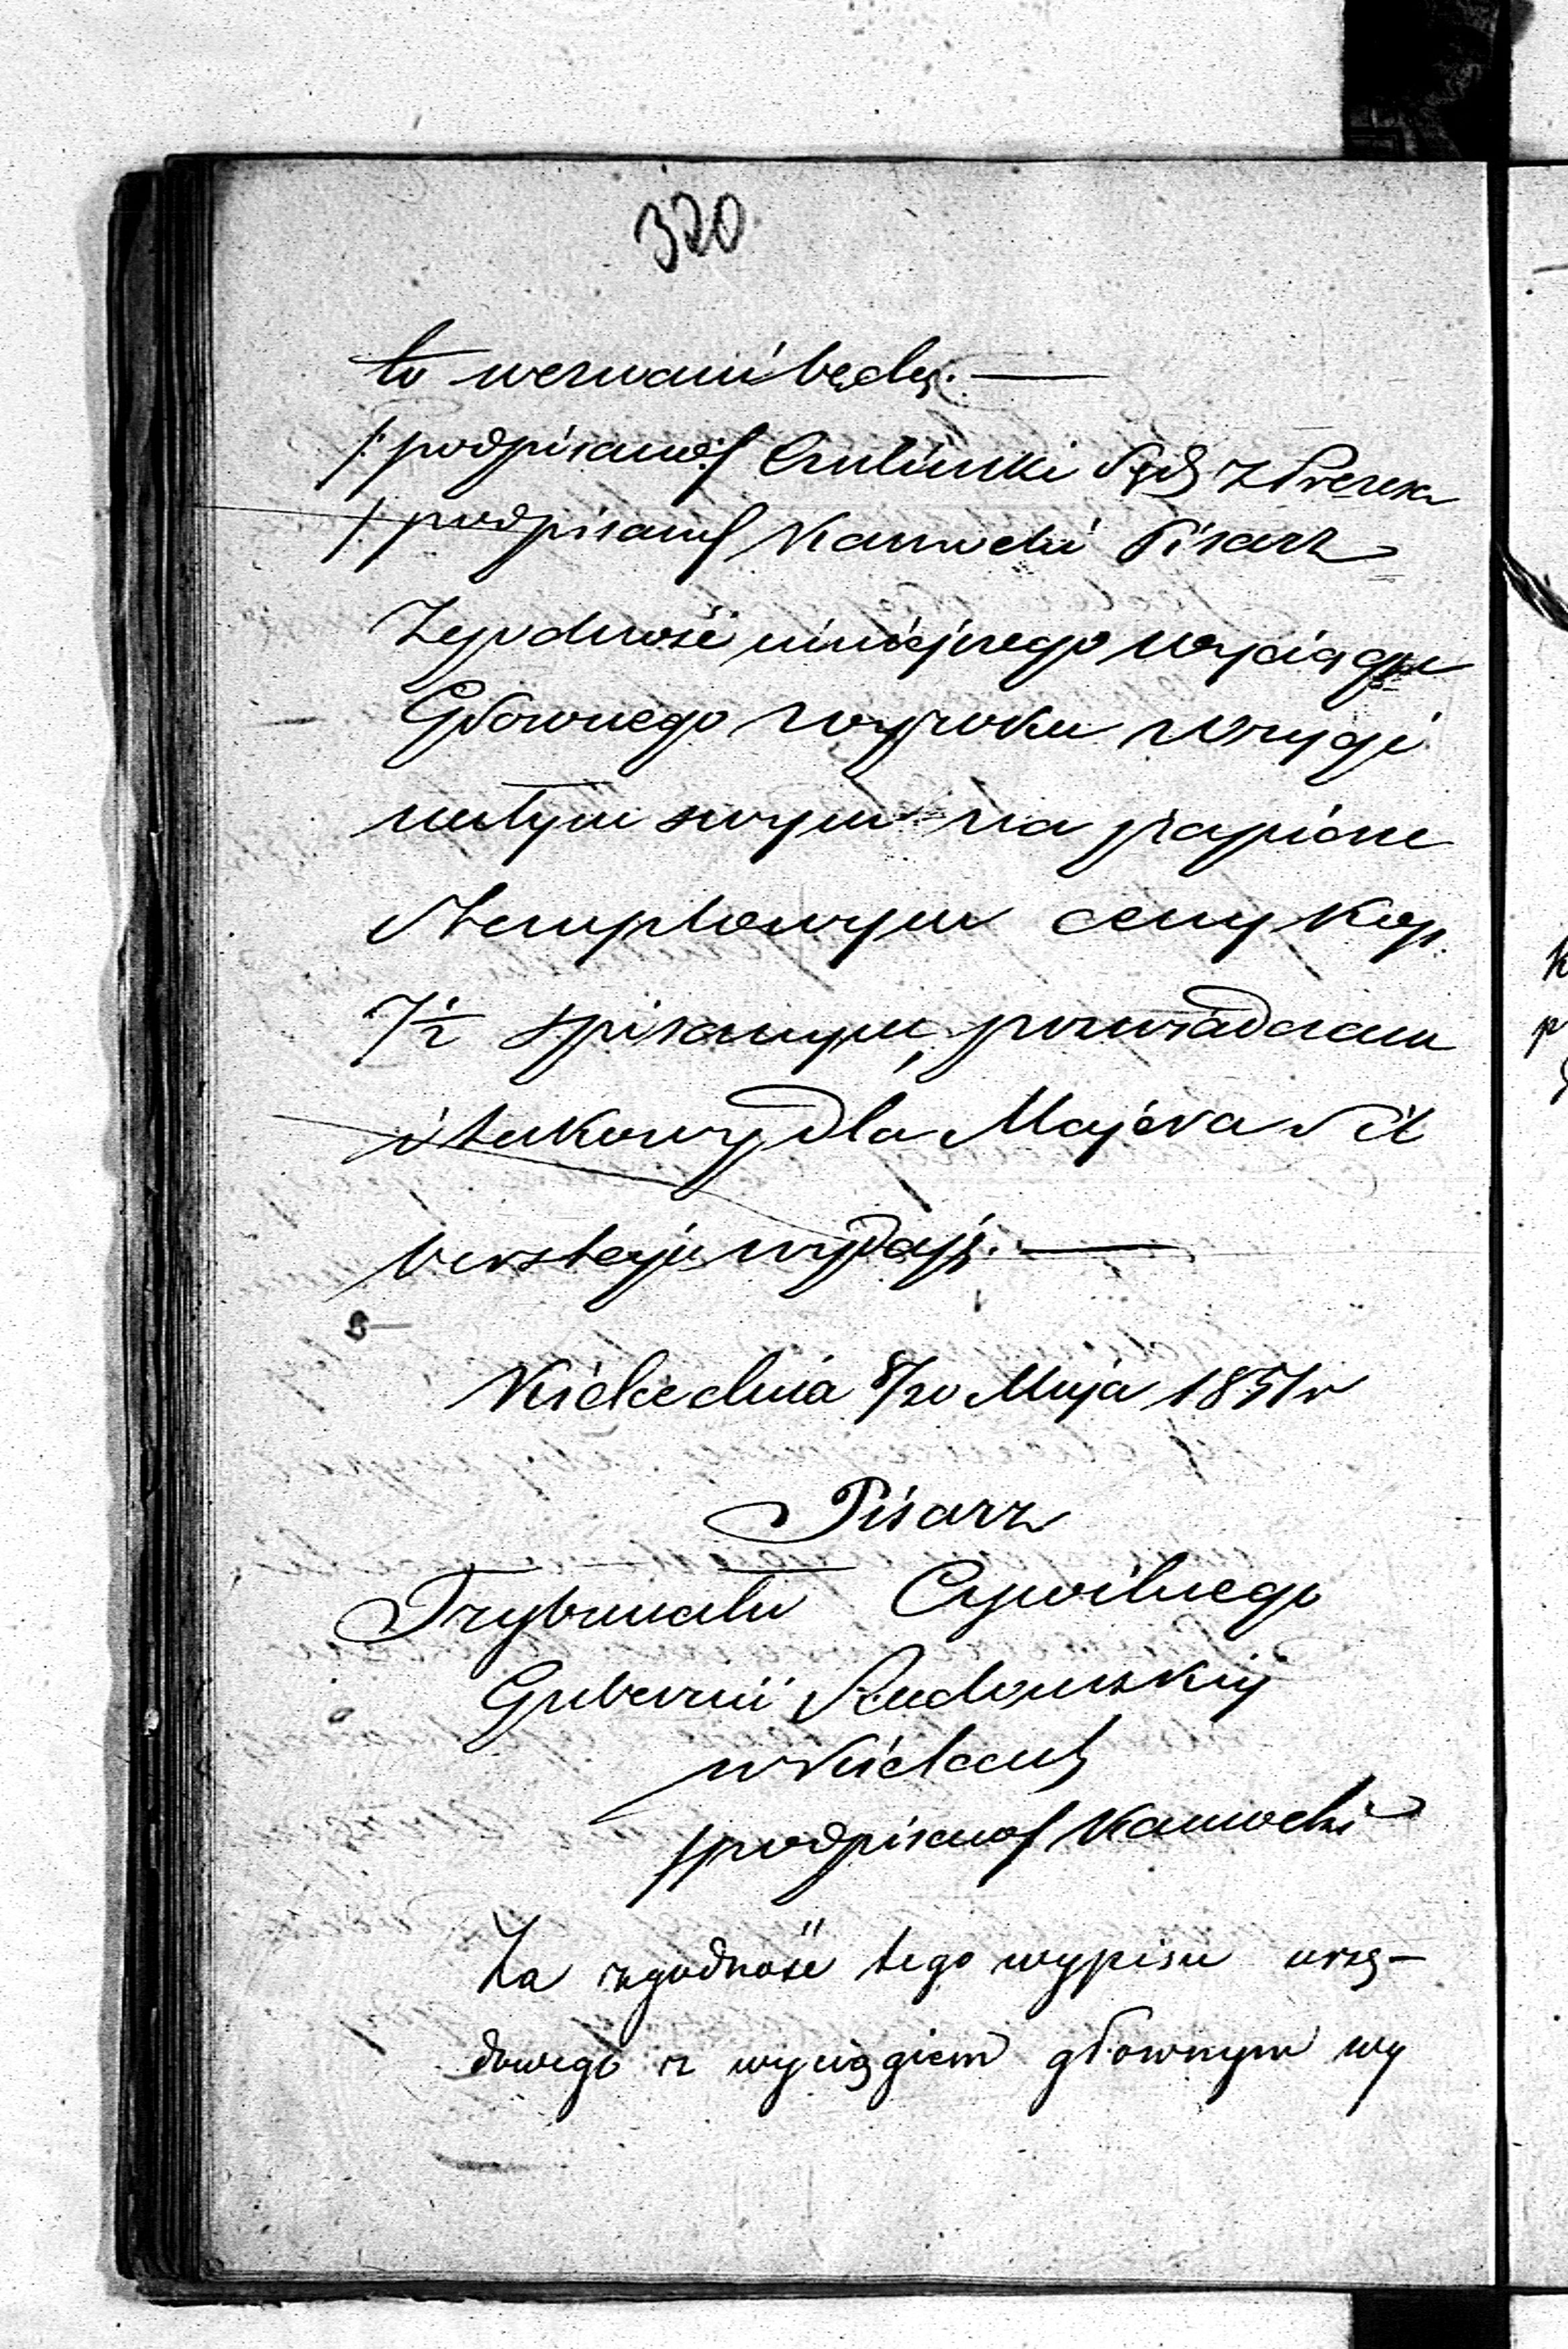 320
to wezwani będą. —
/: podpisano :/ Chuliński Sędz. z Prezesa
/: podpisano :/ Kamocki Pisarz
Zgodność niniejszego wyciągu
Głownego wyroku z orygi
nałem swym na papierze
stemplowym ceny kop.
7½ spisanym, poswiadczam
i takowy dla Majera Sil
bersteju wydaję. —
Kielce dnia 8/20 Maja 1851 r
Pisarz
Trybunału Cywilnego
Gubernii Radomskiej
w Kielcach
/podpisano/ Kamocki
Za zgodność tego wypisu urzę-
dowego z wyciągiem głownym wy